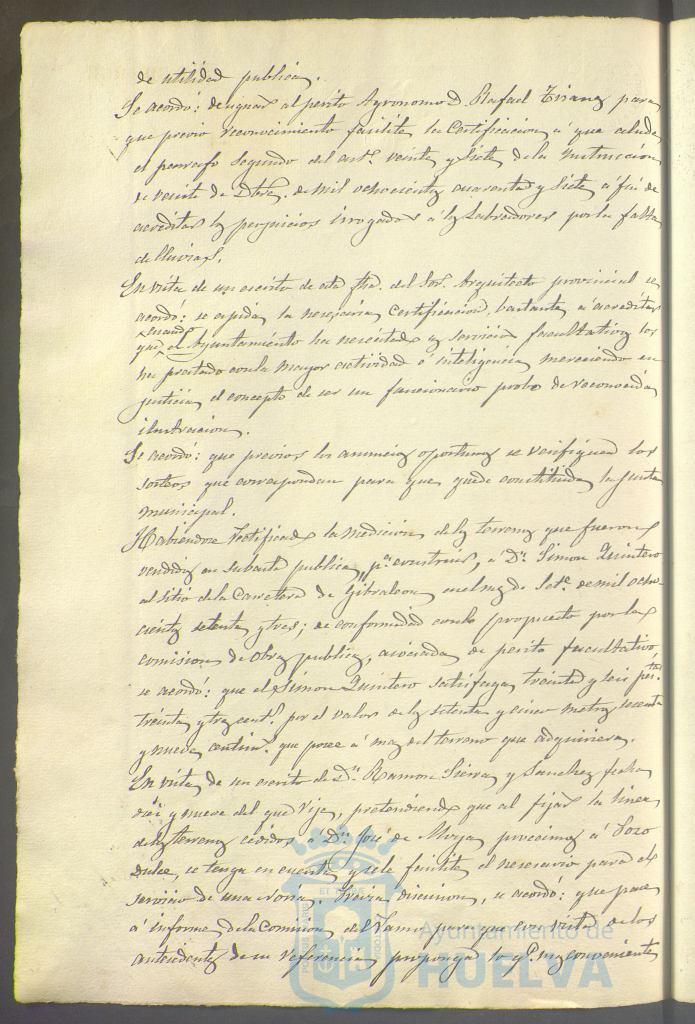 de utilidad publica.
Se acordó: designar al perito Agronomo D. Rafael Tirana para
que previo reconocimiento facilite la Certificacion a que alude
el parrafo segundo del artº. veinte y siete de la Instruccion
de veinte de Dbre. de mil ochocientos cuarenta y siete á fin de
acreditar los perjuicios irrogados á los Labradores por la falta
de lluvias.
En vista de un escrito de esta fha. del Sor. Arquitecto provincial se
acordó: se expida la necesaria Certificacion, bastante á acreditar
cuando
que el Ayuntamiento ha necesitado sus servicios facultativos los
ha prestado con la mayor actividad é inteligencia mereciendo en
justicia el concepto de ser un funcionario probo de reconocida
ilustracion.
Se acordó: que previos los anuncios oportunos se verifiquen los
sorteos que correspondan para que quede constituida la Junta
municipal.
Habiendose rectificado la medicion de los terrenos que fueron
vendidos en subasta publica, pª construir, á Dn. Simon Quintero
al sitio de la Carretera de Gibraleon en el mes de Sete. de mil ocho-
cientos setenta y tres; de conformidad con lo propuesto por la
comision de obras publicas, asociada de perito facultativo,
se acordó: que el Simon Quintero satisfaga treinta y seis pts.
treinta y tres cents. por el valor de los setenta y cinco metros sesenta
y nueve centims. que posee á mas del terreno que adquiriera.
En vista de un escrito de Dn. Ramon Sierra y Sanchez fecha
diez y nueve del que rije, pretendiendo que al fijar la linea
de los terrenos cedidos á Dn. José de Moya proccimos á Pozo
Dulce, se tenga en cuenta y se le facilite el necesario para el
servicio de una noria. Previa discusion, se acordó: que pase
á informe de la Comision del Ramo para que con vista de los
antecedentes de su referencia proponga lo q.e mas conveniente
Ayuntamiento de
HUELVA